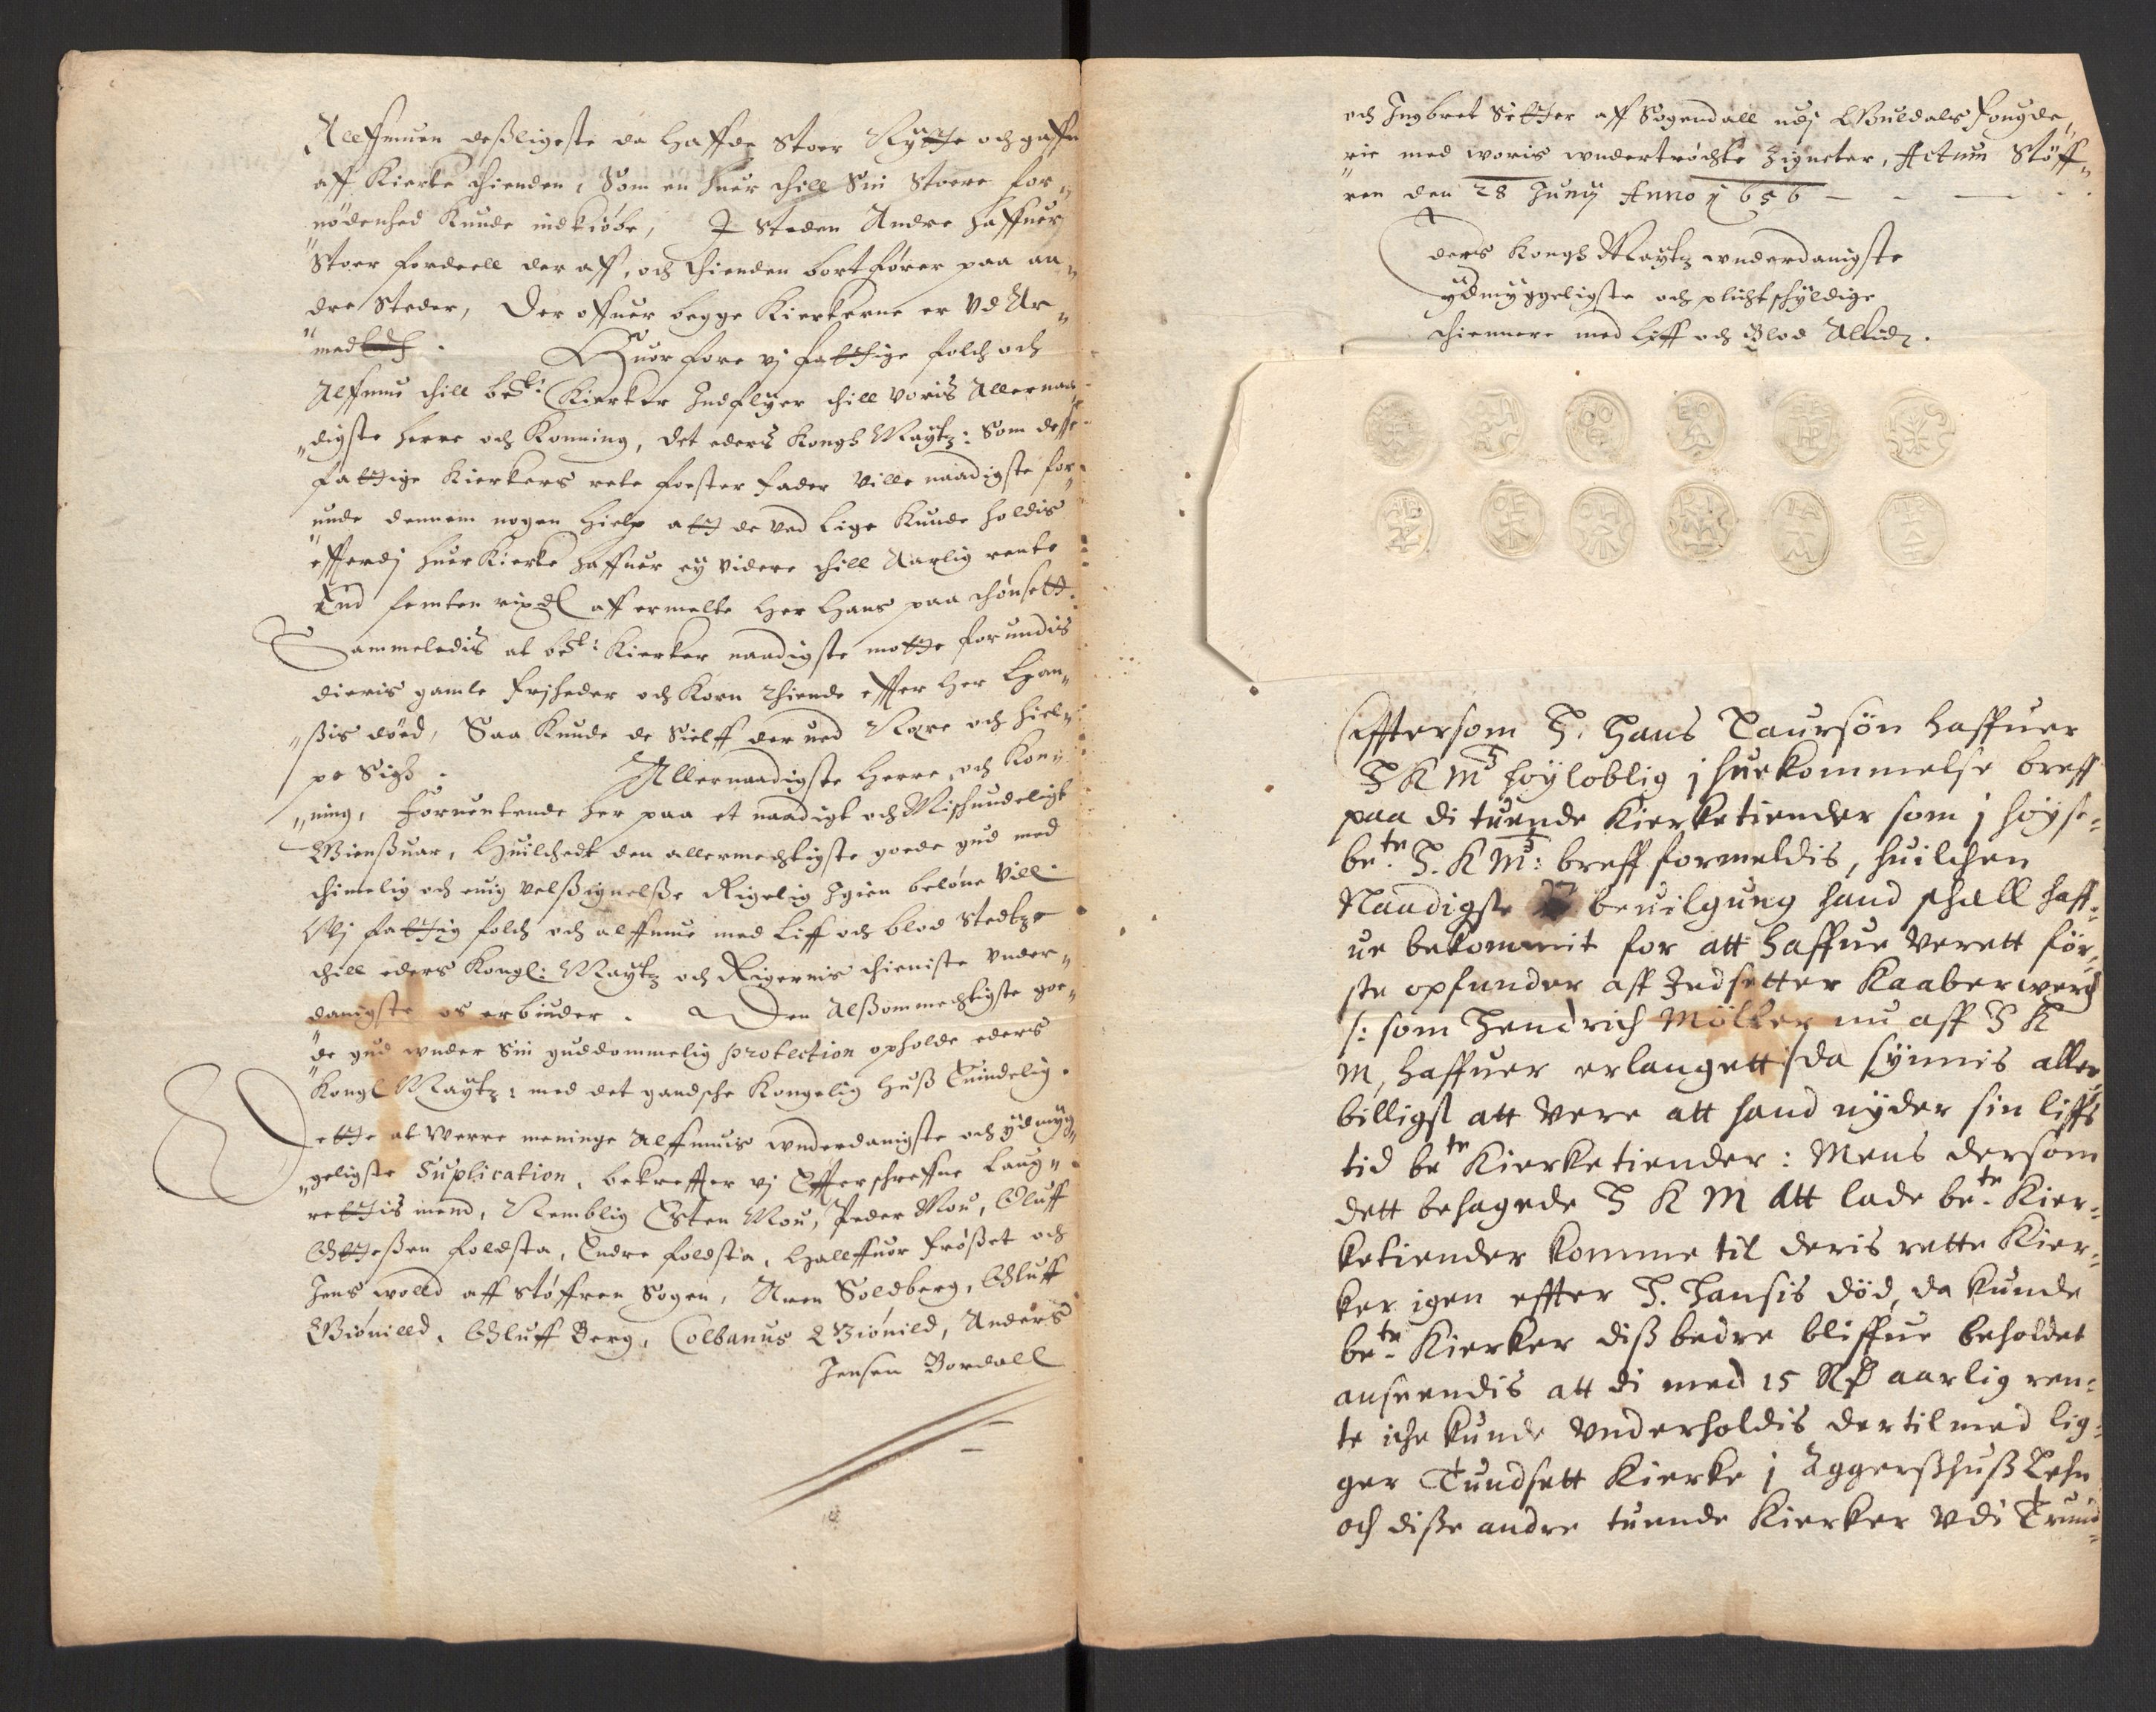 Allffmuen deßligeste da haffde Stoer Nytte och gaffn
aff Kierke thienden, Som en huer thill Sin Stoere for„
„nødenhed Kunde indkiøbe, J Steden Andre haffuer
Stoer fordeell der aff, och thienden bortfører paa an„
dre Steder, Der offuer begge Kierkerne er Vd Ar„
„med
Huor fore vj fattige folch och
Alffmu thill bete: Kierker Indflyer thill voris Allernaa„
„digste herre och Konning, det eders Kongl Maytz: Som desse
fattige Kierkers rete foester fader Ville naadigste for„
„unde dennem nogen hielp att de ved lige Kunde holdis
efferdj huer Kierke haffuer ey videre thill Aarlig rente
End femten rixdl aff ermelte her Hans paa thønsett.
Sammeledis at bete: Kierker naadigste motte forundis
dieris gamle frjheder och Korn thiende effter her Han„
„ßis død, Saa Kunde de Sielff der ved Nære och hiel„
pe Sigh. Allernaadigste Herre och Kon„
„ning, Foruentende her paa et naadigt och Mißkundeligt
Giensuar, Huilchedt den allermechtigste goede gud med
thimelig och euig velßignelße Rigelig Igien beløne vill.
Vj fattig folch och alffmue med Liff och blod Stedtze
thill eders Kongl: Maytz och Rigernis thieniste vnder„
danigste os erbiuder. Den Alßommechtigste goe„
„de gud vnder Sin guddommelig protection opholde eders
Kongl Maytz: med det gandsche Kongelig Huß Euindelig.
Dette at Werre meninge Alffmuis vnderdanigste och ydmyg„
„geligste Suplication, bekreffter vj Effterschreffne Laug„
rettis mend, Nemblig Esten Mou, Peder Mou, Oluff
Ottesßen foldsta, Endre foldsta, Hallffuor frøßet och
Jens wolld aff støffren Sogen, Aren Soldberg, Oluff
Giønilld, Oluff Berg, Colbanus Giønild, Anders
Jensen Bordall
och Ingbret Setter aff Sogendall udj Guldals fougde„
„rie med woris vndertrøchte Zigneter, Actum Støff„
ren den 28 Junij Anno 1656
Eders Kongl Maytz vnderdanigste
ydmyggeligste och plichtschyldige
thiennere med Liff och Blod Altid.
Efftersom H. Hans Taursøn haffuer
H K Mts høyloblig jhuekommelse breff
paa di tuende Kierketiender som j høyst=
bete H. K Mts: breff formeldis, huilchen
Naadigste beuilgung hand schall haff=
ue bekommit for att haffue verett før=
ste opfunder aff Indsetter Kaaberwerch
/: som Hendrich Møller nu aff H K
M, haffuer erlangett :/ da synnis aller
billigst att vere att hand nyder sin liffs
tid bete Kierketiender: Mens dersom
dett behagede H K M Att lade bete Kier=
ketiender komme til deris rette Kier=
ker igen effter H. Hansis død, da kunde
bete Kierker diß bedre bliffue beholdet
anseendis att di med 15 Rd aarlig ren=
te iche kunde vnderholdis dertilmed lig=
ger Tundsett Kierke j Aggerßhuß Lehn
och diße andre tuende Kierker vdi Trund=